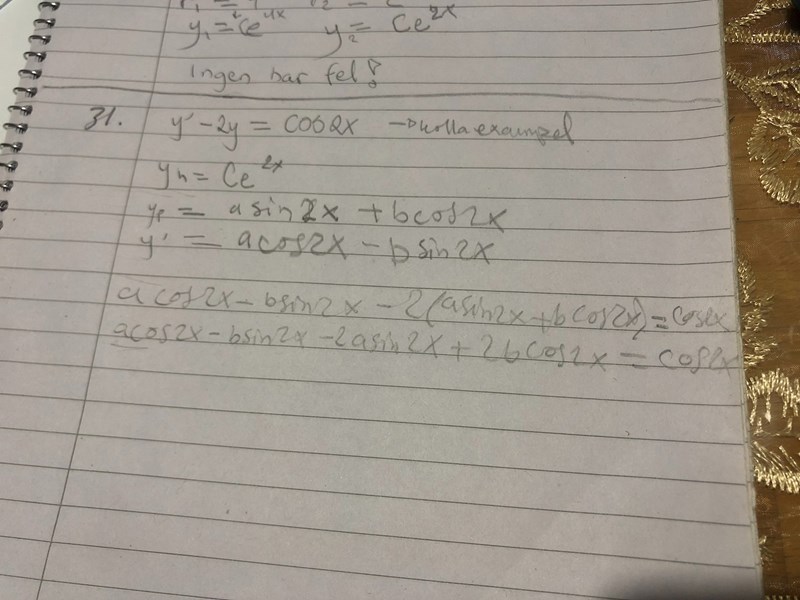 y₁=Ce⁴ˣ y₂= Ce²ˣ
Ingen har fel!
31. y'-2y = cos2x → kolla exempel
yh = Ce²ˣ
yp = a sin2x + b cos2x
y' = a cos2x - b sin2x
a cos2x - b sin2x - 2(a sin2x + b cos2x) = cos2x
a cos2x - b sin2x - 2a sin2x + 2b cos2x = cos2x